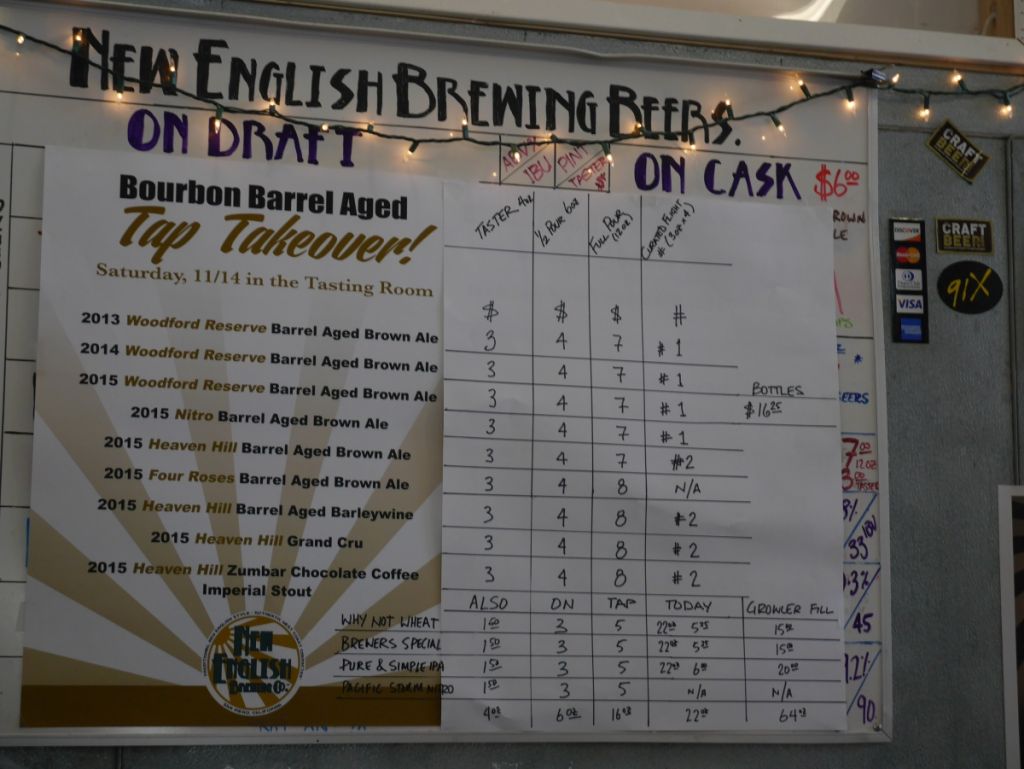 NEW ENGLISH BREWING BEERS.
ON DRAFT
ABV% IBU PINT TASTER
ON CASK $6.00
Bourbon Barrel Aged
Tap Takeover!
Saturday, 11/14 in the Tasting Room
TASTER 4oz 1/2 POUR 6oz FULL POUR (12oz) CURATED FLIGHT # (3oz x 4)
$ $ $ #
2013 Woodford Reserve Barrel Aged Brown Ale 3 4 7 #1
2014 Woodford Reserve Barrel Aged Brown Ale 3 4 7 #1
2015 Woodford Reserve Barrel Aged Brown Ale 3 4 7 #1
BOTTLES
$16.25
2015 Nitro Barrel Aged Brown Ale 3 4 7 #1
2015 Heaven Hill Barrel Aged Brown Ale 3 4 7 #2
2015 Four Roses Barrel Aged Brown Ale 3 4 8 N/A
2015 Heaven Hill Barrel Aged Barleywine 3 4 8 #2
2015 Heaven Hill Grand Cru 3 4 8 #2
2015 Heaven Hill Zumbar Chocolate Coffee 3 4 8 #2
Imperial Stout
ALSO ON TAP TODAY GROWLER FILL
WHY NOT WHEAT 1.50 3 5 22oz 5.75 15.00
BREWERS SPECIAL 1.50 3 5 22oz 5.75 15.00
PURE & SIMPLE IPA 1.50 3 5 22oz 6.00 20.00
PACIFIC STORM NITRO 1.50 3 5 N/A N/A
4oz 6oz 16oz 22oz 64oz
NEW
ENGLISH
BREWING CO.
SAN DIEGO, CALIFORNIA
CRAFT
BEER!
DISCOVER
MasterCard
VISA
CRAFT
BEER!
91X
ROWN
LE
EERS
7.00
12OZ
3.00
TASTER
8%
33 IBU
.3%
45
.2%
90